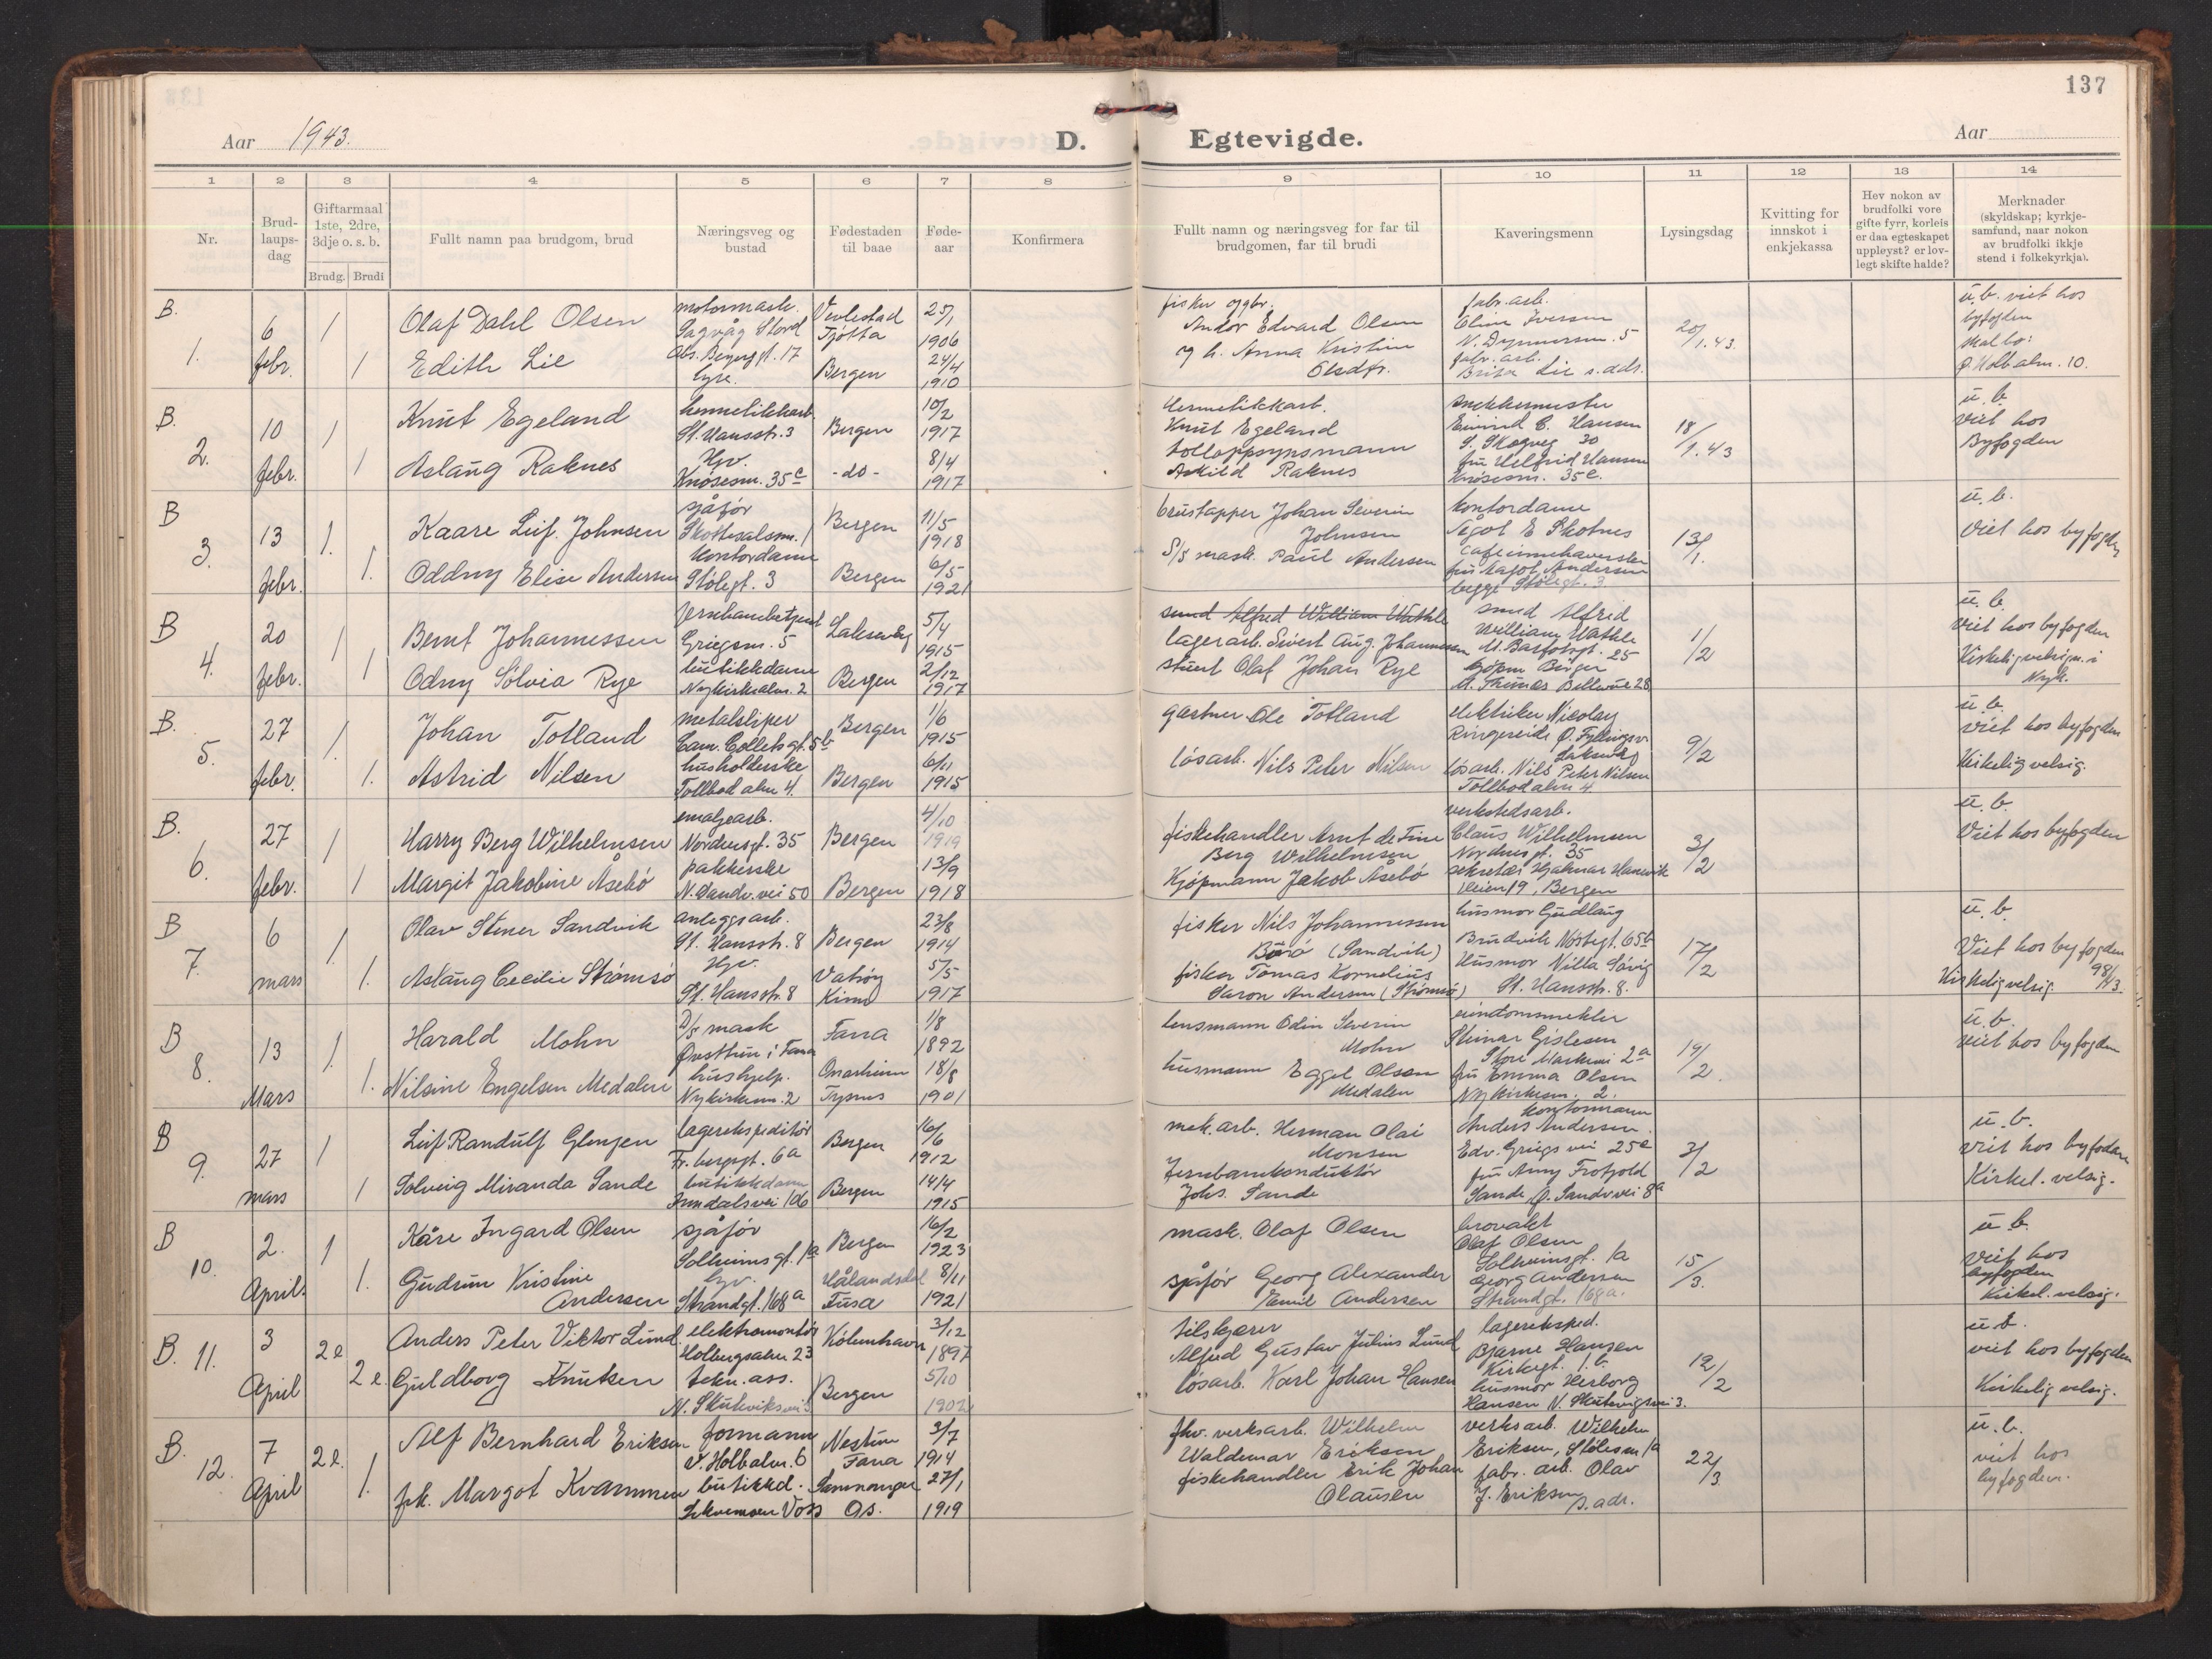 137
Aar 1943.
D. Egtevigde.
Aar
1 2 3 4 5 6 7 8 9 10 11 12 13 14
Nr.
Brud-
laups-
dag
Giftarmaal
1ste, 2dre,
3dje o. s. b.
Brudg. Brudi
Fullt namn paa brudgom, brud
Næringsveg og
bustad
Fødestaden
til baae
Føde-
aar
Konfirmera
Fullt namn og næringsveg for far til
brudgomen, far til brudi
Kaveringsmenn
Lysingsdag
Kvitting for
innskot i
enkjekassa
Hev nokon av
brudfolki vore
gifte fyrr, korleis
er daa egteskapet
uppløyst? er lov-
legt skifte halde?
Merknader
(skyldskap; kyrkje-
samfund, naar nokon
av brudfolki ikkje
stend i folkekyrkja).
B.
1.
6
febr.
1
1
Olaf Dahl Olsen
Edith Lie
motormask.
Sagvåg Stord
17
Tjøtta
Bergen
25/1
1906
24/4
1910
fisker og gbr.
Andor Edvard Olsen
og h. Anna Kristine
Olsdtr.
fabr. arb.
Oline Iversen
5
fabr. arb.
Brita Lie s. adr.
20/1.43.
u. b. viet hos
byfogden
10.
B.
2.
10
febr.
1
1
Knut Egeland
Aslaug Raknes
hermetikkarb.
St. Hansstr. 3
Hjv.
Knøsesm. 35c
Bergen
-do-
10/2
1917
8/4
1917
Hermetikkarb.
Knut Egeland
tolloppsynsmann
Askild Raknes
snekkermester
Eivind C. Hansen
S. Skogveg 30
fru Helfrid Hansen
Knøsesm. 35c.
18/1.43
u. b.
viet hos
Byfogden
B
3.
13
febr.
1.
1.
Kaare Leif Johnsen
Oddny Elise Andersen
sjåfør
Skottesalsm. 1
kontordame
Stølegt. 3
Bergen
Bergen
11/5
1918
6/5
1921
brustapper Johan Severin
Johnsen
S/S mask. Paul Andersen
kontordame
Ågot E Skotnes
cafeinnehaverske
fru Aagot Andersen
begge Stølegt. 3
13/1.
u. b.
Viet hos byfogden
B
4.
20
febr.
1
1
Bernt Johannessen
Odny Sølvia Rye
Jernbanebetjent
Griegsm. 5
butikkdame
Nykirkealm. 2
Laksevåg
Bergen
5/4
1915
2/12
1917
smed Alfred William Wathle
lagerarb. Sivert Aug. Johannessen
stuert Olaf Johan Rye
smed Alfred
William Wathle
M. Barfotsgt. 25
kjøpm Birger
Bellevue 28
1/2
u. b.
viet hos byfogden
Kirkelig velsign. i
Nyk.
B.
5.
27
febr.
1.
1.
Johan Totland
Astrid Nilsen
metalsliper
Cam. Collets gt. 5b
husholderske
Tollbod alm 4.
Bergen
Bergen
1/6
1915
6/11
1915
gartner Ole Totland
løsarb. Nils Peter Nilsen
elektriker Nicolay
Ringereide Ø. Fyllingsv.
Laksevåg
løsarb. Nils Peter Nilsen
Tollbodalm 4
9/2
u. b.
viet hos byfogden
Kirkelig velsig.
B.
6.
27
febr.
1
1
Harry Berg Wilhelmsen
Margit Jakobine Åsebø
emaljearb.
Nordnesgt. 35
pakkerske
N. Sandv. vei 50
Bergen
Bergen
4/10
1919
13/9
1918
fiskehandler Arnt de Fine
Berg Wilhelmsen
Kjøpmann Jakob Åsebø
verkstedsarb.
Claus Wilhelmsen
Nordnesgt. 35
sekretær Hjalmar Hansvik
Veien 19, Bergen
3/2
u. b.
Viet hos byfogden
B
7.
6
mars
1.
1.
Olav Stener Sandvik
Aslaug Cecilie Strømsø
anleggsarb.
St. Hansstr. 8
Hjv.
St. Hansstr. 8
Bergen
Vatsøy
Kinn
23/8
1914
5/5
1917
fisker Nils Johannessen
Børø (Sandvik)
fisker Tomas Kornelius
Saron Andersen (Strømsø)
husmor Gudlaug
Brudvik Nøstegt. 65b
Husmor Nilla Søvig
St. Hansstr. 8.
17/2
u. b.
Viet hos byfogden
Kirkelig velsig.
B
8.
13
Mars
1.
1.
Harald Mohn
Nilsine Engelsen Medalen
D/S mask
Øvsttun i Fana
hushjelp.
Nykirkem. 2
Fana
Onarheim
Tysnes
1/8
1892
18/8
1901
lensmann Odin Severin
Mohn
husmann Eggel Olsen
Medalen
eiendomsmekler
Steinar Gislesen
Store Markevei 2a
fru Emma Olsen
Nykirkesm. 2.
19/2.
u. b.
viet hos byfogden
B
9.
27
mars
1
1
Leif Randulf Glenjen
Solveig Miranda Sande
lagerekspeditør
6a
butikkdame
Bergen
Bergen
16/6
1912
14/4
1915
mek. arb. Herman Olai
Monsen
Jernbanekonduktør
Johs. Sande
kontormann
Anders Andersen.
Edv. Griegs vei 25a
fru Anny Trofjold
Sande, Ø. Sandv.vei 8a
3/2
u. b.
viet hos byfogden
Kirkel. velsig.
B
10.
2.
April.
1
1.
Kåre Ingard Olsen
Gudrun Kristine
Andersen
sjåfør
Solheimsgt. 1a
hjv.
Strandgt. 168a
Bergen
Hålandsdal
Fusa
16/2
1923
8/11
1921
mask. Olaf Olsen
sjåfør Georg Alexander
Emil Andersen
brovakt
Olaf Olsen
Solheimsgt. 1a
Georg Andersen
Strandgt. 168a.
15/3.
u. b.
Viet hos
byfogden
Kirkel. velsig.
B. 11.
3
April
2e
2e.
Anders Peter Viktor Lund.
Guldborg Knutsen
elektromontør
Holbergsalm 23
tekn. ass.
N. Skuteviksvei 3
København
Bergen
3/12
1897
5/10
1902
tilskjærer
Alfred Gustav Julius Lund
løsarb. Karl Johan Hansen
lagereksped.
Bjarne Hansen
Kirkegt. 1. b.
husmor Herborg
Hansen N. Skutevigsvei 3.
12/2
u. b.
viet hos byfogden
Kirkelig velsig.
B.
12.
7
April
2e.
1.
Alf Bernhard Eriksen
frk. Margot Kvammen
formann
v. Holbalm. 6
butikkd.
Voss
Nestun
Fana
Samnanger
Os.
3/7
1914
27/1
1919
fhv. verksarb. Wilhelm
Waldemar Eriksen
fiskehandler Erik Johan
Olausen
verksarb. Wilhelm
Eriksen, Stølesm 1a
fabr. arb. Olav
J. Eriksen s. adr.
22/3.
u. b.
viet hos
byfogden.